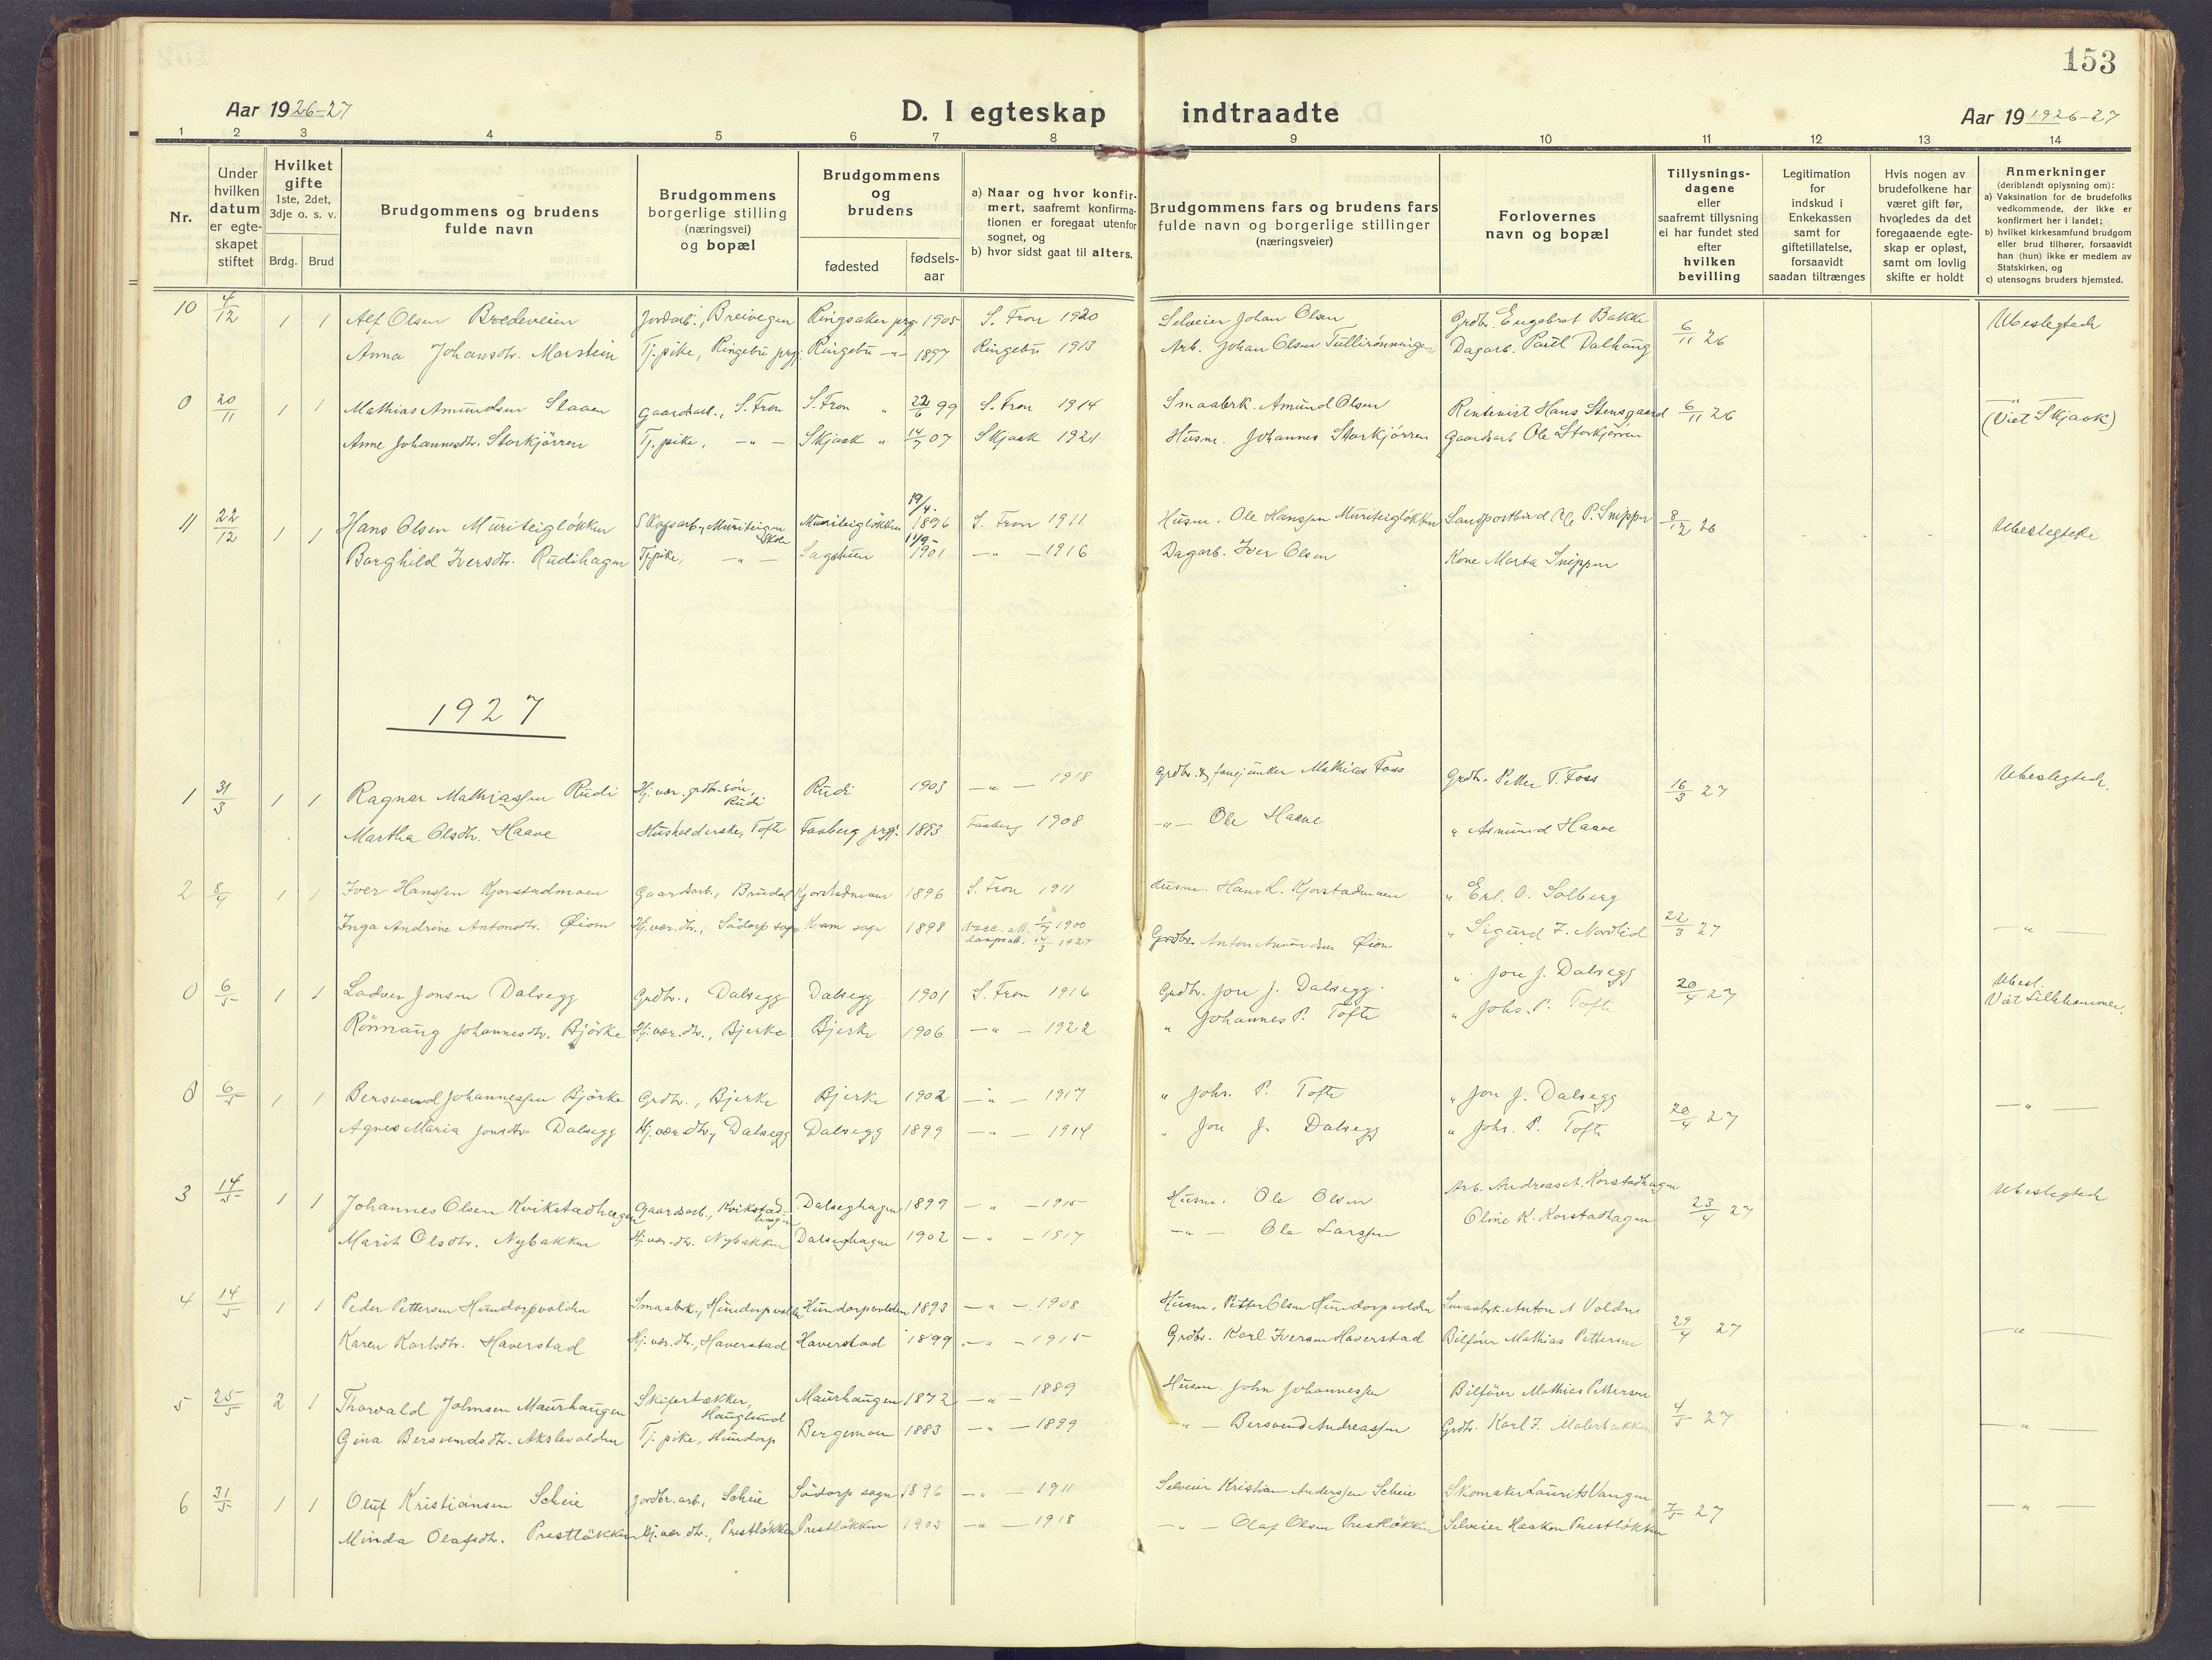 153
Aar 1926-27
D. I egteskap indtraadte
Aar 19 1926-27
1 2 3 4 5 6 7 8 9 10 11 12 13 14
Nr.
Under hvilken datum er egteskapet stiftet
Hvilket gifte 1ste, 2det, 3dje o. s. v.
Brdg. Brud
Brudgommens og brudens fulde navn
Brudgommens borgerlige stilling (næringsvei) og bopæl
Brudgommens og brudens
fødested
fødselsaar
a) Naar og hvor konfirmert, saafremt konfirmationen er foregaat utenfor sognet, og
b) hvor sidst gaat til alters.
Brudgommens fars og brudens fars fulde navn og borgerlige stillinger (næringsveier)
Forlovernes navn og bopæl
Tillysningsdagene eller saafremt tillysning ei har fundet sted efter hvilken bevilling
Legitimation for indskud i Enkekassen samt for giftetillatelse, forsaavidt saadan tiltrænges
Hvis nogen av brudefolkene har været gift før, hvorledes da det foregaaende egteskap er opløst, samt om lovlig skifte er holdt
Anmerkninger (deriblandt oplysning om):
a) Vaksination for de brudefolks vedkommende, der ikke er konfirmert her i landet;
b) hvilket kirkesamfund brudgom eller brud tilhører, forsaavidt han (hun) ikke er medlem av Statskirken, og
c) utensogns bruders hjemsted.
10 4/12 1 1 Alf Olsen Bredeveien Jordarb., Breivegen Ringsaker prg. 1905 S. Fron 1920 Selveier Johan Olsen Grdbr. Engebret Bakke 6/11 26 Ubeslegtede
Anna Johansdtr. Marstein Tj.pike, Ringebu prgj. Ringebu -"- 1897 Ringebu 1913 Arb. Johan Olsen Tullirønningen Dagarb. Paul Dalhaug
0 20/11 1 1 Mathias Amundsen Staaen Gaardsarb., S. Fron S. Fron " 22/6 99 S. Fron 1914 Smaabrk. Amund Olsen Rentenist Hans Stensgaard 6/11 26 -"-
(Viet Skjaak)
Anne Johannesdtr. Storkjørren Tj.pike, -"- Skjaak " 14/7 07 Skjaak 1921 Husm. Johannes Storkjørren Gaardsarb. Ole Storkjørren
11 22/12 1 1 Hans Olsen Muriteigløkken Skogsarb., Muriteigen Muriteigløkken 19/4. 1896 S. Fron 1911 Husm. Ole Hanssen Muriteigløkken Landpostbud P. Snippen 8/12 26 Ubeslegtede
Borghild Iversdtr. Rudihagen Tj.pike, -"- Sagstuen 11/9- 1901 -"- 1916 Dagarb. Iver Olsen Kone Marta Snippen
1927
1 31/3 1 1 Ragnar Mathiassen Rudi Hj.vær. grdbr.søn, Rudi Rudi 1903 -"- 1918 Grdbr. & fanejunker Mathias Foss Grdbr. Petter T. Foss 16/3 27 Ubeslegtede.
Martha Olsdtr. Haave Husholderske, Tofte Faaberg prgj. 1893 Faaberg 1908 -"- Ole Haave " Asmund Haave
2 8/4 1 1 Iver Hanssen Kjorstadmoen Gaardsarb., Brudal Kjorstadmoen 1896 S. Fron 1911 Husm. Hans L. Kjorstadmoen " Erl. O. Solberg
Inga Andrine Antonsdtr. Øiom Hj.vær.dtr., Södorp sogn Kvam sogn 1898 Vacc. att. 1/7 1900 daapsatt. 14/3 1927 Grdbr. Anton Amundsen Øiom " Sigurd F. Nordlid 22/3 27 -"-
0 6/5 1 1 Ladver Jonsen Dalsegg Grdbr., Dalsegg Dalsegg 1901 S. Fron 1916 Grdbr. Jon J. Dalsegg. " Jon J. Dalsegg 20/4 27 Ubesl.
Viet Lillehammer.
Rønnaug Johannesdtr. Bjørke Hj.vær.dtr., Bjerke Bjerke 1906 -"- 1922 " Johannes P. Tofte " Johs. P. Tofte
0 6/5 1 1 Bersvend Johannessen Bjørke Grdbr., Bjerke Bjerke 1902 -"- 1917 " Johs. P. Tofte " Jon J. Dalsegg 20/4 27 -"-
Agnes Maria Jonsdtr. Dalsegg Hj.vær.dtr., Dalsegg Dalsegg 1899 -"- 1914 " Jon J. Dalsegg " Johs. P. Tofte
3 14/5 1 1 Johannes Olsen Kvikstadhagen Gaardsarb., Kvikstadhagen Dalseghagen 1897 -"- 1915 Husm. Ole Olsen Arb. Andreas A. Korstadhagen 23/4 27 Ubeslegtede
Marit Olsdtr. Nybakken Hj.vær.dtr. Nybakken Dalseghagen 1902 -"- 1917 -"- Ole Larssen Oline K. Korstadhagen
4 14/5 1 1 Peder Pettersen Hundorpvolden Smaabrk., Hundorpvolden Hundorpvolden 1893 -"- 1908 Husm. Petter Olsen Hundorpvolden Smaabrk. Anton N Volden 29/4 27 -"-
Karen Karlsdtr. Haverstad Hj.vær.dtr., Haverstad Haverstad 1899 -"- 1915 Grdbr. Karl Iversen Haverstad Bilfører Mathias Pettersen
5 25/5 2 1 Thorvald Johnsen Maurhaugen Skifertækker, Hauglund Maurhaugen 1872 -"- 1889 Husm. John Johannessen Bilfører Mathias Pettersen 4/5 27 -"-
Gina Bersvendsdtr. Akslevolden Tj.pike, Hundorp Bergemoen 1883 -"- 1899 -"- Bersvend Andreassen Grdbr. Karl F. Malerbakken
6 31/5 1 1 Oluf Kristiansen Scheie Jordbr.arb., Scheie Södorp sogn 1896 -"- 1911 Selveier Kristian Anderssen Scheie Skomaker Laurits Vangen 7/5 27 -"-
Minda Olafsdtr. Prestløkken Hj.vær.dtr., Prestløkken Prestløkken 1903 -"- 1918 -"- Olaf Olsen Prestløkken Selveier Haakon Prestløkken